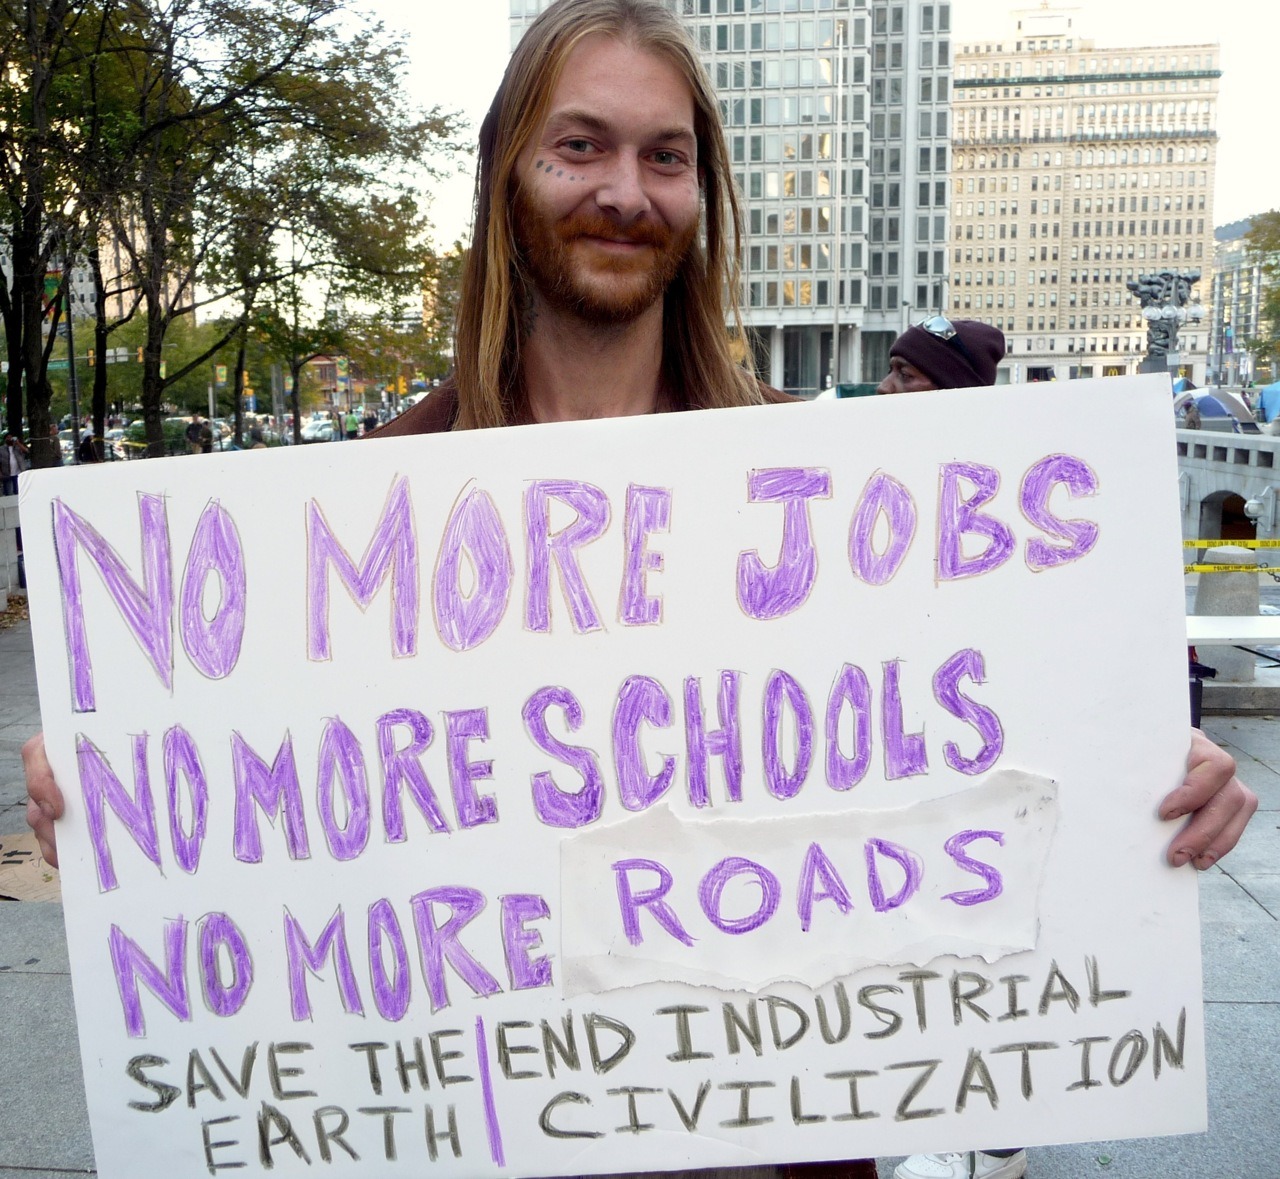 NO MORE JOBS
NO MORE SCHOOLS
NO MORE ROADS
SAVE THE
EARTH
END INDUSTRIAL
CIVILIZATION